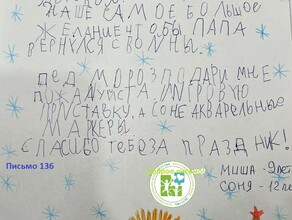 НАШЕ САМОЕ БОЛЬШОЕ
ЖЕЛАНИЕ ЧТОБЫ ПАПА
ВЕРНУЛСЯ С ВОЙНЫ
ДЕД МОРОЗ ПОДАРИ МНЕ
ПОЖАЛУЙСТА ИГРОВУЮ
ПРИСТАВКУ, А СОНЕ АКВАРЕЛЬНЫЕ
МАРКЕРЫ
СПАСИБО ТЕБЕ ЗА ПРАЗДНИК!
Письмо 136
МИША - 9 лет
СОНЯ - 12 лет